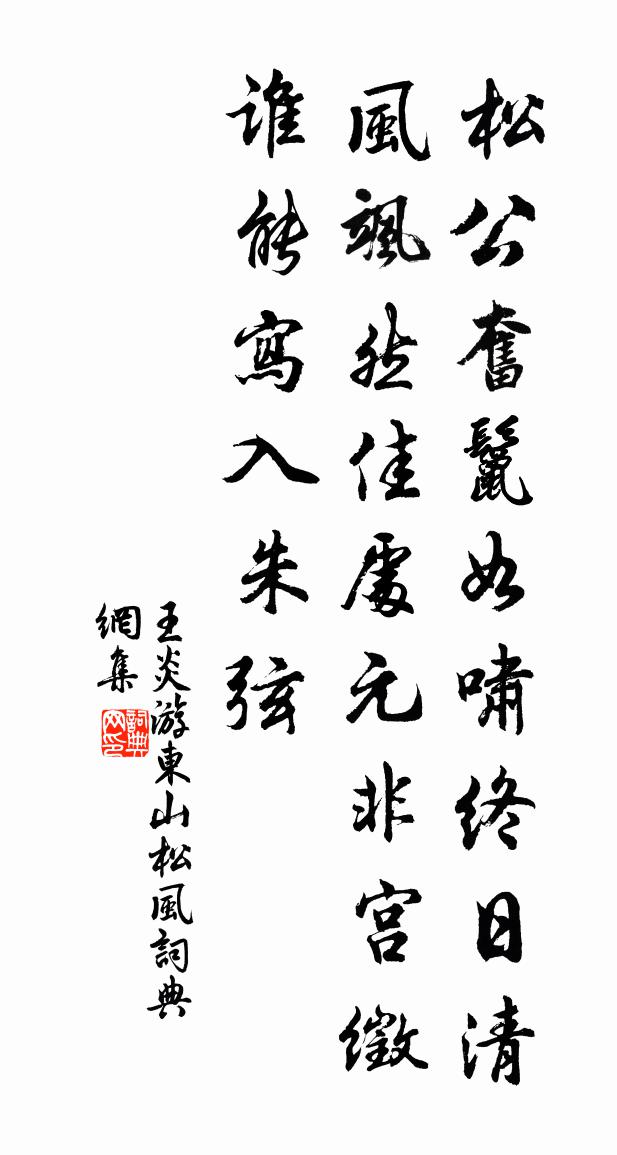 松公奮鬣如嘯終日清
風颯然佳處元非宮徵
誰能寫入朱弦
王炎游東山松風詞典
網集
詞典
网印